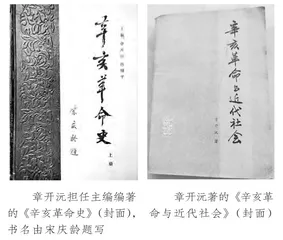 主编 章开沅 林增平
辛亥革命史
上册
宋庆龄题
辛亥革命与近代社会
章开沅著
章开沅担任主编编著
的《辛亥革命史》(封面),
书名由宋庆龄题写
章开沅著的《辛亥革
命与近代社会》(封面)